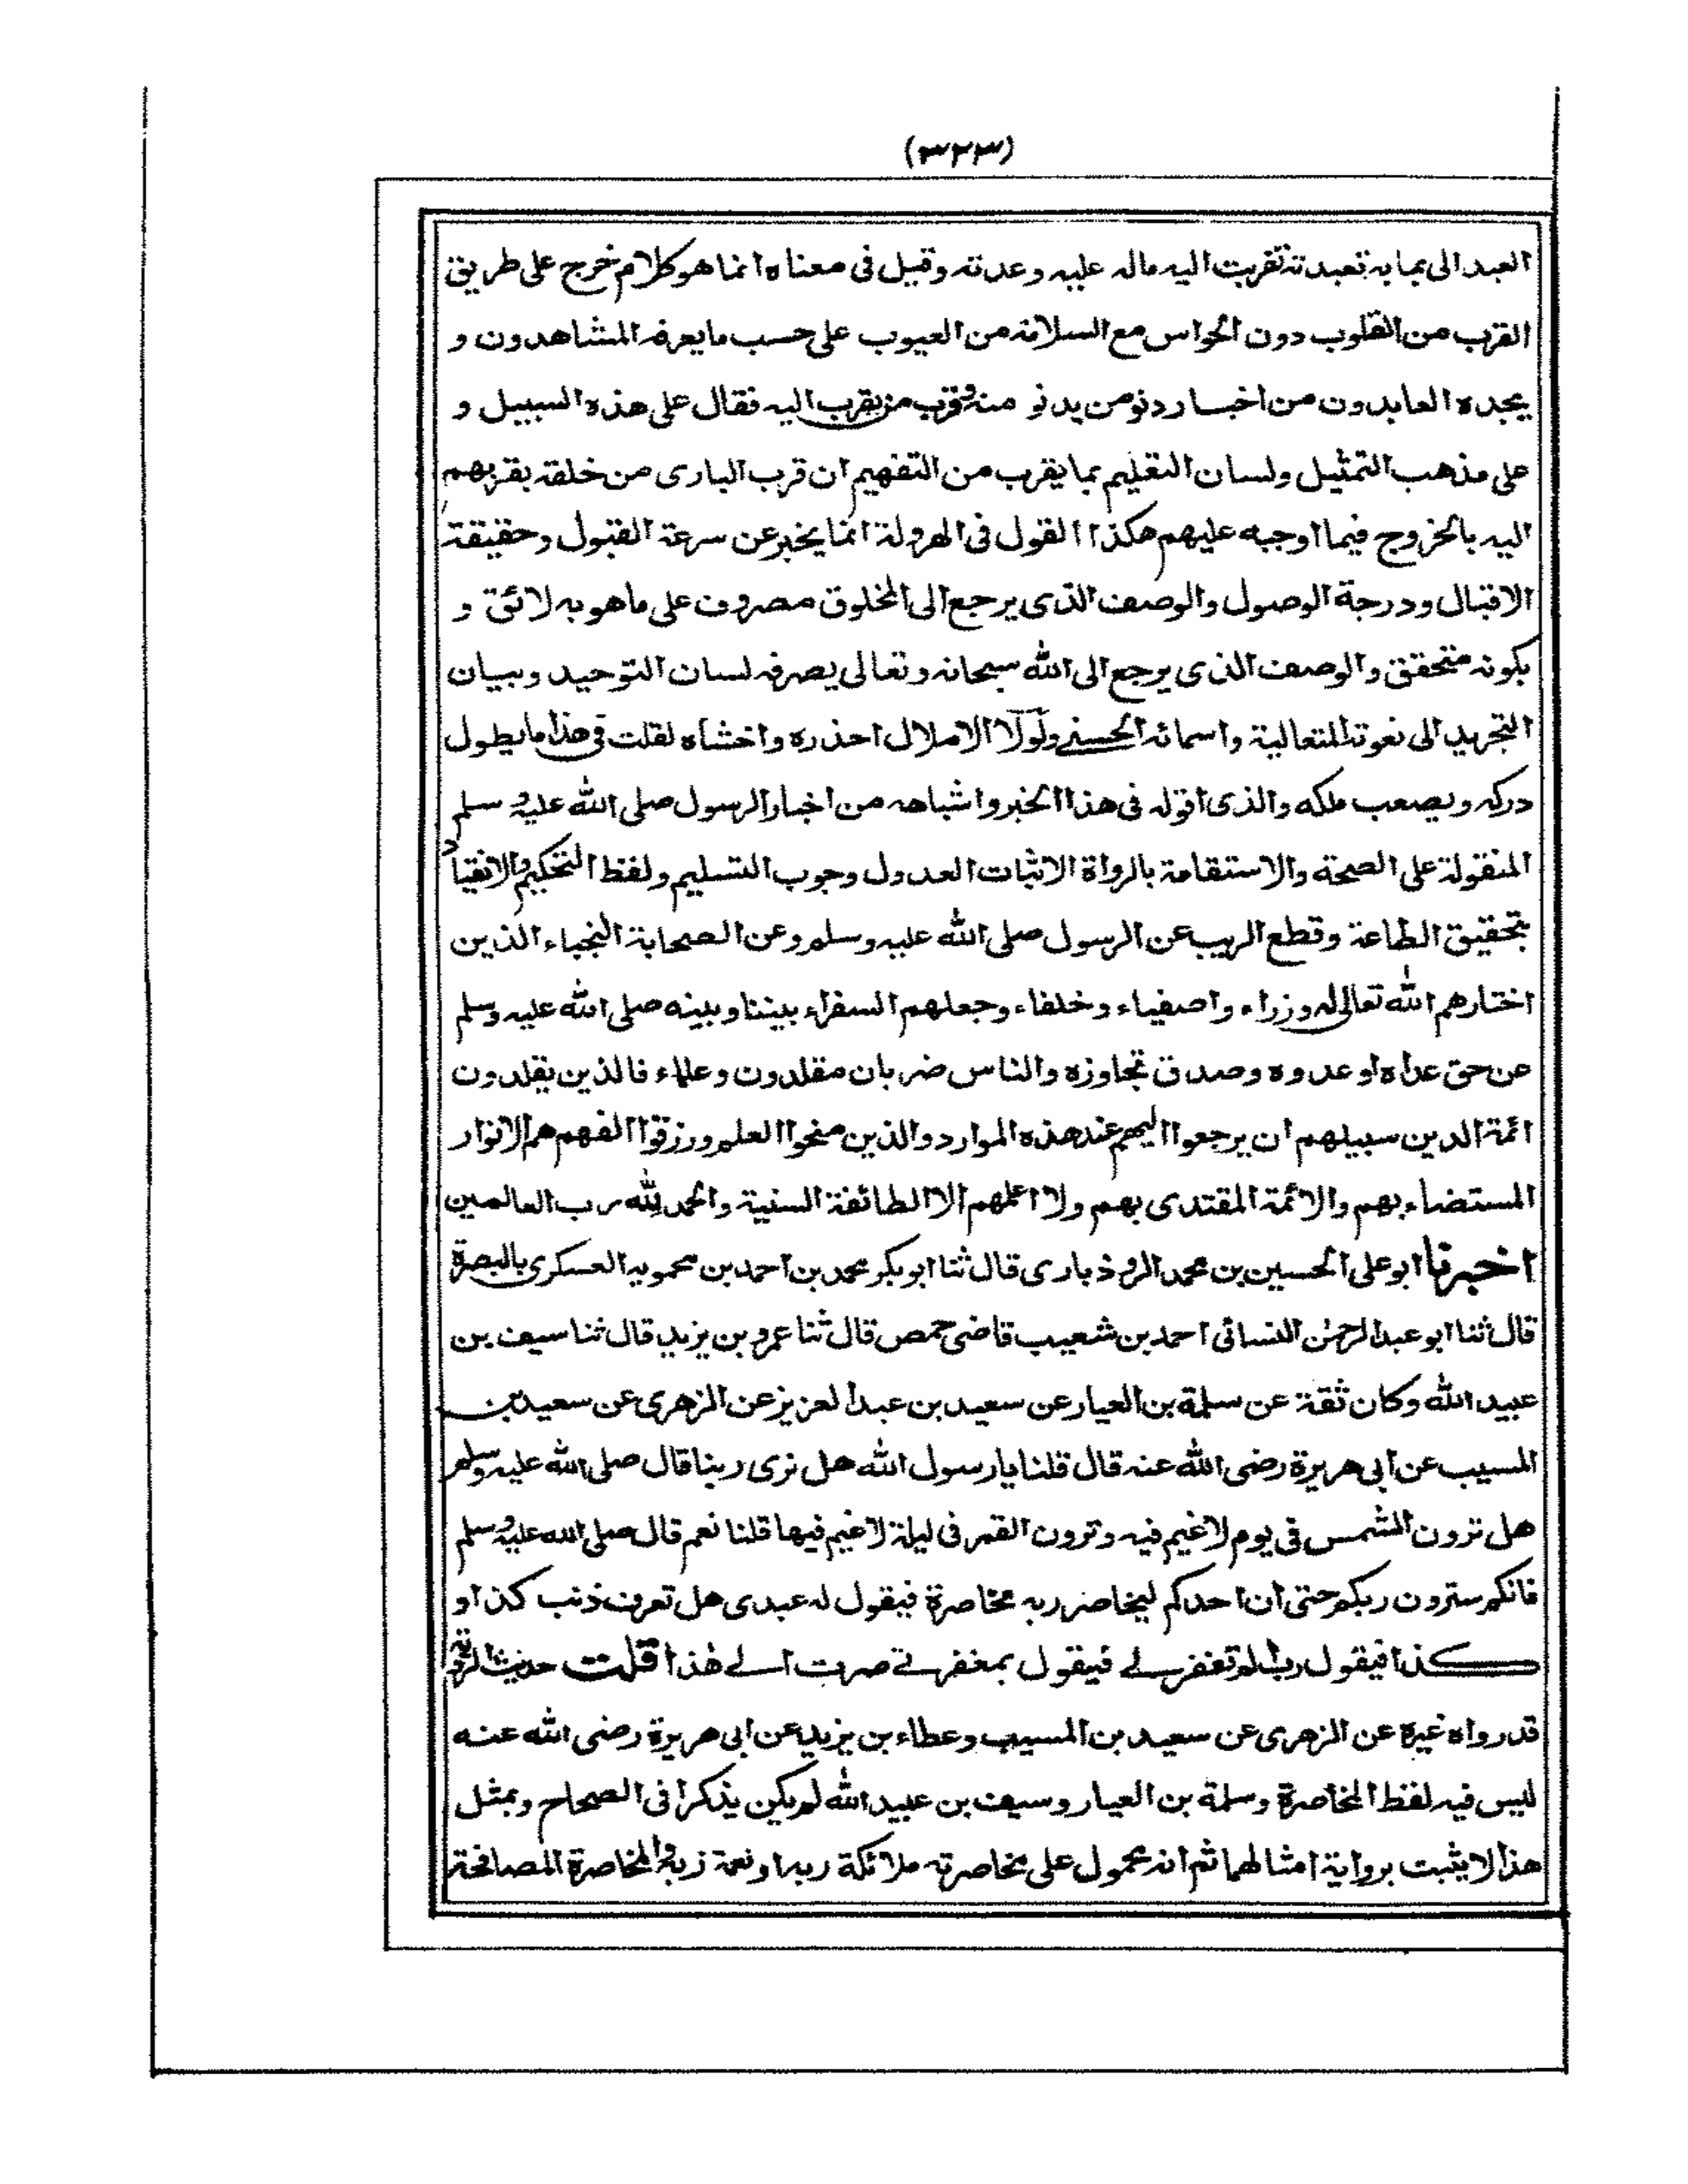 (٣٢٣)
العبد الى بما به تعبدته تقربت اليه ماله عليه وعدته وقيل فى معناه انما هو كلام خرج على طريق
القرب من القلوب دون الحواس مع السلامة من العيوب على حسب ما يعرفه المشاهدون و
يجده العابدون من اخبار دنو من يدنو منه وقرب من يقرب اليه فقال على هذه السبيل و
على مذهب التمثيل ولسان التعليم بما يقرب من التفهيم ان قرب البارى من خلقه بقربهم
اليه بالخروج فيما اوجبه عليهم هكذا القول فى الهرولة انما يخبر عن سرعة القبول وحقيقة
الاقبال ودرجة الوصول والوصف الذى يرجع الى المخلوق مصروف على ما هو به لائق و
بكونه متحقق والوصف الذى يرجع الى الله سبحانه وتعالى يصرفه لسان التوحيد وبيان
التجريد الى نعوته المتعالية واسمائه الحسنى ولولا الاملال احذره واخشاه لقلت فى هذا ما يطول
دركه ويصعب ملكه والذى اقوله فى هذا الخبر واشباهه من اخبار الرسول صلى الله عليه وسلم
المنقولة على الصحة والاستقامة بالرواة الاثبات العدول وجوب التسليم ولفظ التحكيم والانقياد
بتحقيق الطاعة وقطع الريب عن الرسول صلى الله عليه وسلم وعن الصحابة النجباء الذين
اختارهم الله تعالى له وزراء واصفياء وخلفاء وجعلهم السفراء بيننا وبينه صلى الله عليه وسلم
عن حق عداه او عدوه وصدق تجاوزه والناس ضربان مقلدون وعلماء فالذين يقلدون
ائمة الدين سبيلهم ان يرجعوا اليهم عند هذه الموارد والذين منحوا العلم ورزقوا الفهم هم الانوار
المستضاء بهم والائمة المقتدى بهم ولا اعلمهم الا الطائفة السنية والحمد لله رب العالمين
اخبرنا ابو على الحسين بن محمد الروذبارى قال ثنا ابو بكر محمد بن احمد بن محمويه العسكرى بالبصرة
قال ثنا ابو عبد الرحمن النسائى احمد بن شعيب قاضى حمص قال ثنا عمرو بن يزيد قال ثنا سيف بن
عبيد الله وكان ثقة عن سلمة بن العيار عن سعيد بن عبد العزيز عن الزهرى عن سعيد بن
المسيب عن ابى هريرة رضى الله عنه قال قلنا يا رسول الله هل نرى ربنا قال صلى الله عليه وسلم
هل ترون الشمس فى يوم لا غيم فيه وترون القمر فى ليلة لا غيم فيها قلنا نعم قال صلى الله عليه وسلم
فانكم سترون ربكم حتى ان احدكم ليخاصر ربه مخاصرة فيقول له عبدى هل تعرف ذنب كذا و
كذا فيقول رب الم تغفر لى فيقول بمغفرتى صرت الى هذا قلت حديث الرؤية
قد رواه غيره عن الزهرى عن سعيد بن المسيب وعطاء بن يزيد عن ابى هريرة رضى الله عنه
ليس فيه لفظ المخاصرة وسلمة بن العيار وسيف بن عبيد الله لم يكن يذكرا فى الصحاح وبمثل
هذا لا يثبت برواية امثالهما ثم انه محمول على مخاصرته ملائكة ربه او نعمة ربه والمخاصرة المصافحة